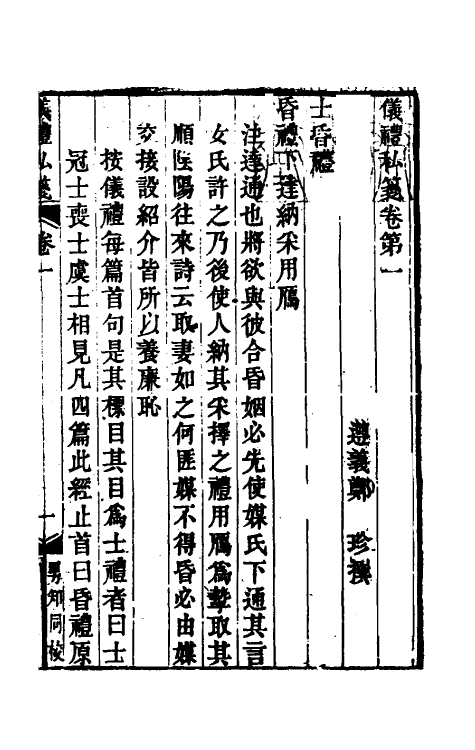 儀禮私箋卷第一
遵義鄭　珍撰
士昏禮
昏禮下達納采用鴈
注達通也將欲與彼合昏姻必先使媒氏下通其言
女氏許之乃後使人納其采擇之禮用鴈爲摯取其
順陰陽往來詩云取妻如之何匪媒不得昏必由媒
交接設紹介皆所以養廉恥
按儀禮每篇首句是其標目其目爲士禮者曰士
冠士喪士虞士相見凡四篇此經止首曰昏禮原
儀禮私箋　卷一　一　男知同校